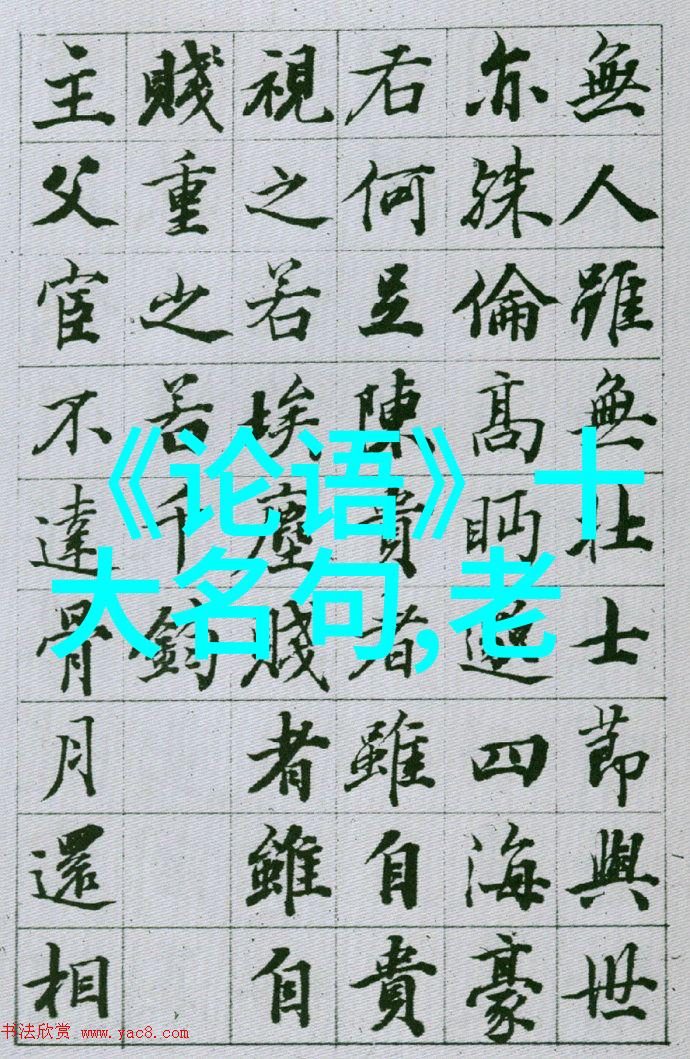 無人雖無壯士節與世
亦殊倫高眄邈四海豪
右何足陳貴者雖自貴
視之若埃塵賤者雖自
賤重之若千鈞
主父宦不達骨月還相
《论语》十
大名句,老
书法欣赏 www.yac8.com